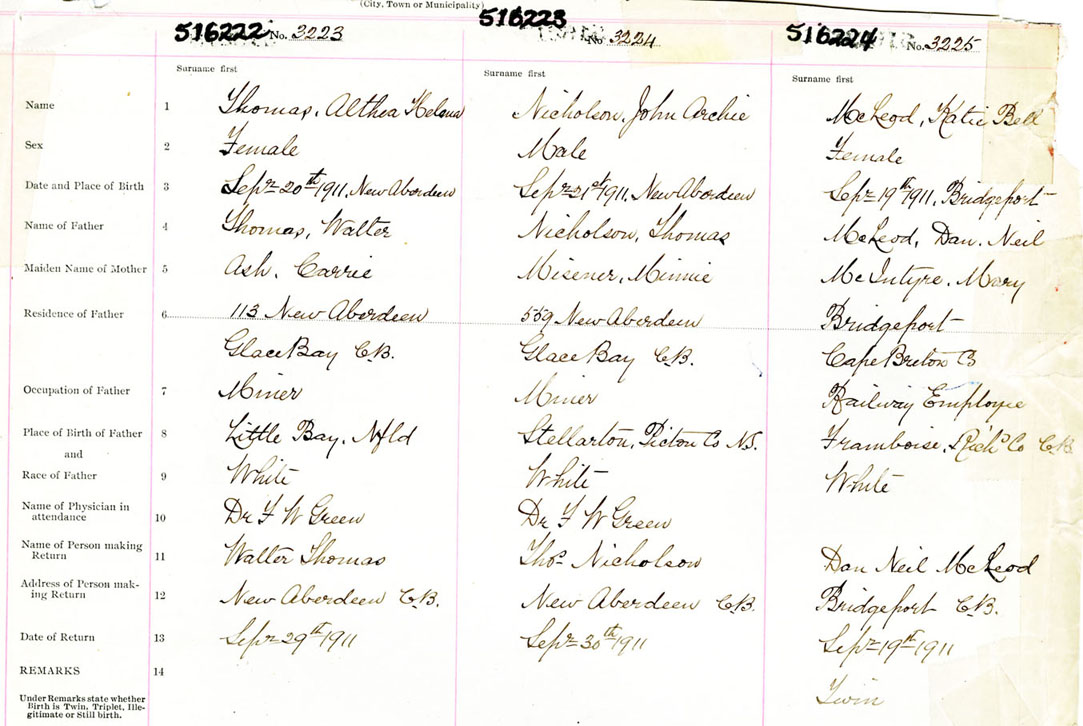 (City, Town or Municipality)
516222 No. 3223 516223 No 3224 516224 No. 3225
Surname first Surname first Surname first
Name 1 Thomas, Althea Helena Nicholson, John Archie McLeod, Katie Bell
Sex 2 Female Male Female
Date and Place of Birth 3 Sepr 20th 1911, New Aberdeen Sepr 21st 1911, New Aberdeen Sepr 19th 1911, Bridgeport
Name of Father 4 Thomas, Walter Nicholson, Thomas McLeod, Dan. Neil
Maiden Name of Mother 5 Ash, Carrie Misener, Minnie McIntyre, Mary
Residence of Father 6 113 New Aberdeen 559 New Aberdeen Bridgeport
Glace Bay C.B. Glace Bay C.B. Cape Breton
Occupation of Father 7 Miner Miner Railway Employee
Place of Birth of Father 8 Little Bay, Nfld Stellarton, Picton Co NS. Framboise, Rich Co C.B.
and
Race of Father 9 White White White
Name of Physician in
attendance 10 Dr F W Green Dr F W Green
Name of Person making
Return 11 Walter Thomas Thos Nicholson Dan Neil McLeod
Address of Person mak-
ing Return 12 New Aberdeen C.B. New Aberdeen C.B. Bridgeport C.B.
Date of Return 13 Sepr 29th 1911 Sepr 30th 1911 Sepr 19th 1911
REMARKS 14
Under Remarks state whether Twin
Birth is Twin, Triplet, Ille-
gitimate or Still birth.